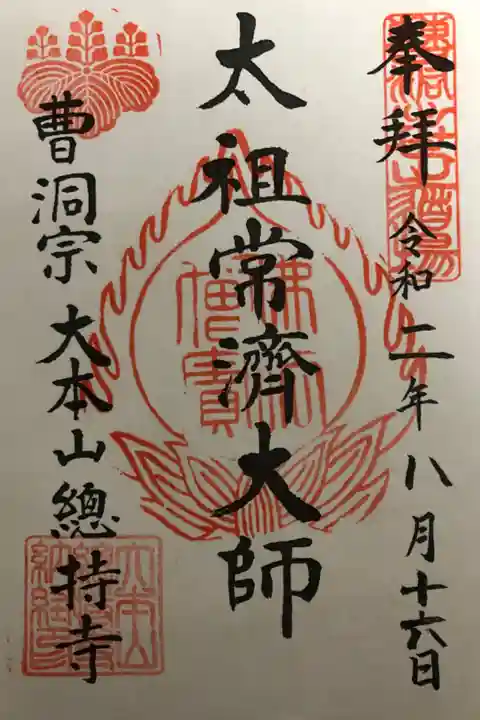 奉拜 令和二年八月十六日
太祖常濟大師
曹洞宗 大本山總持寺